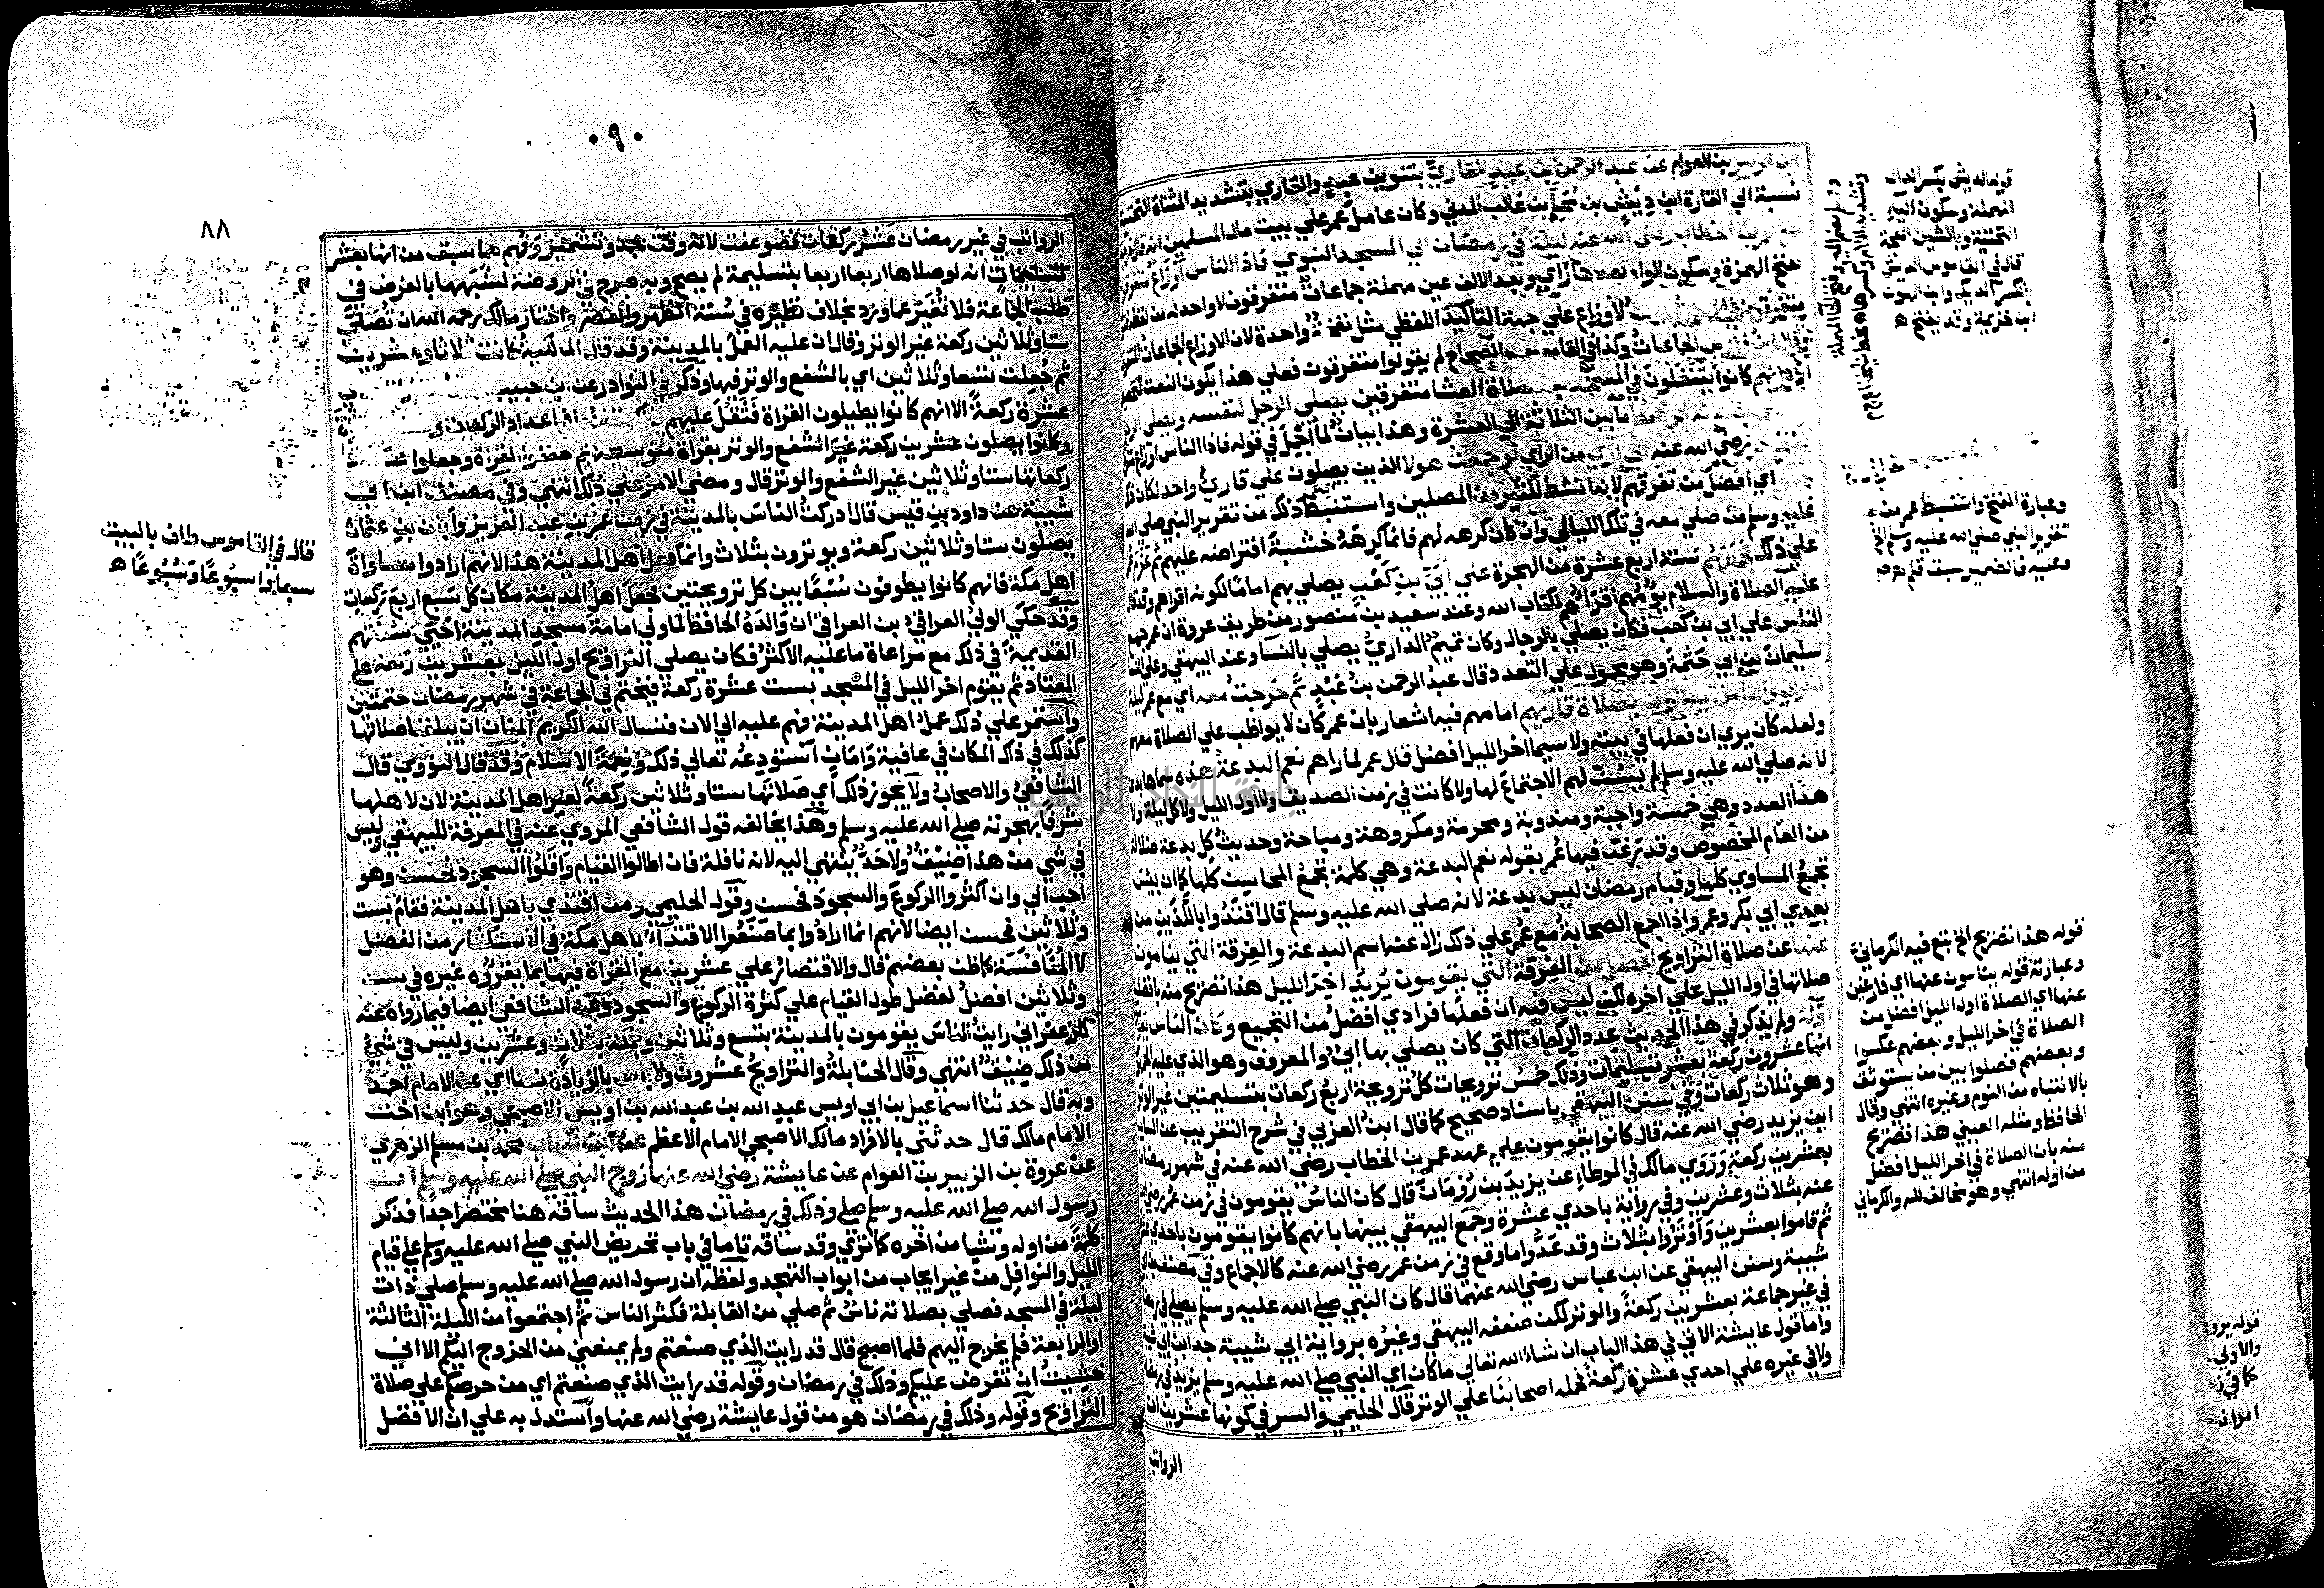 ابن الزبير بن العوام عن عبد الرحمن بن عبدٍ القاريّ بتنوين عبدٍ والقاري بتشديد المثناة التحتية
نسبة الي القارة ابن ديش بن محلم بن غالب المدني وكان عاملَ عمر علي بيت مال المسلمين انه قال
عمر بن الخطاب رضي الله عنه ليلة في رمضان الي المسجد النبوي فاذا الناس اوزاع متفرقون
بفتح الهمزة وسكون الواو بعدها زاي وبعد الالف عين مهملة جماعات متفرقون لا واحد له من لفظه
متفرقون نعت لأوزاع علي جهة التأكيد اللفظي مثل نفخة واحدة لان الاوزاع الجماعات المتفرقة
الجماعات وكذا في القاموس والصحاح لم يقولوا متفرقون فعلي هذا يكون النعت للتخصيص
انهم كانوا يتنفلون في المسجد بعد صلاة العشا متفرقين يصلي الرجل لنفسه ويصلي الرجل
ما بين الثلاثة الي العشرة وهذا بيان لما اجمل في قوله فاذا الناس اوزاع
رضي الله عنه اني اري من الرأي لو جمعت هولا الذين يصلون علي قاريء واحد لكان
اي افضل من تفرقهم لانه انشط لكثير من المصلين واستنبط ذلك من تقرير النبي صلي الله
عليه وسلم من صلي معه في تلك الليالي وان كان كره لهم فانما كرهه خشية افتراضه عليهم ثم عزم
علي ذلك فجمعهم سنة اربع عشرة من الهجرة علي أبي بن كعب يصلي بهم اماما لكونه اقراهم وقد قال
عليه الصلاة والسلام يؤمهم اقرأهم لكتاب الله وعند سعيد بن منصور من طريق عروة ان عمر جمع
الناس علي ابي بن كعب فكان يصلي بالرجال وكان تميم الداري يصلي بالنسا وعند البيهقي وعلي النسا
سليمان بن ابي حثمة وهو محمول علي التعدد قال عبد الرحمن بن عبدٍ ثم خرجت معه اي مع عمر ليلة
اخري والناس يصلون بصلاة قارئهم امامهم فيه اشعار بان عمر كان لا يواظب علي الصلاة معهم
ولعله كان يري ان فعلها في بيته ولا سيما اخر الليل افضل قال عمر لما راهم نعم البدعة هذه سماها بدعة
لانه صلي الله عليه وسلم لم يسن لهم الاجتماع لها ولا كانت في زمن الصديق ولا اول الليل ولا كل ليلة ولا
هذا العدد وهي خمسة واجبة ومندوبة ومحرمة ومكروهة ومباحة وحديث كل بدعة ضلالة
من العام المخصوص وقد رغب فيها عمر بقوله نعم البدعة وهي كلمة تجمع المحاسن كلها كما ان بئس
تجمع المساوي كلها وقيام رمضان ليس بدعة لانه صلي الله عليه وسلم قال اقتدوا بالذين من
بعدي ابي بكر وعمر واذا اجمع الصحابة مع عمر علي ذلك زال عنه اسم البدعة والفرقة التي ينامون
عنها عن صلاة التراويح افضل من الفرقة التي يقومون يريد اخر الليل هذا تصريح منه بافضلية
صلاتها في اول الليل علي اخره لكن ليس فيه ان فعلها فرادي افضل من التجميع وكان الناس يقومون
اوله ولم يذكر في هذا الحديث عدد الركعات التي كان يصلي بها ابي والمعروف وهو الذي عليه الجمهور
انها عشرون ركعة بعشر تسليمات وذلك خمس ترويحات كل ترويحة اربع ركعات بتسليمتين غير الوتر
وهو ثلاث ركعات وفي سنن البيهقي باسناد صحيح كما قال ابن العراقي في شرح التقريب عن السايب
ابن يزيد رضي الله عنه قال كانوا يقومون علي عهد عمر بن الخطاب رضي الله عنه في شهر رمضان
بعشرين ركعة وروي مالك في الموطاء عن يزيد بن رومان قال كان الناس يقومون في زمن عمر رضي الله
عنه بثلاث وعشرين وفي رواية باحدي عشرة وجمع البيهقي بينها بانهم كانوا يقومون باحدي عشرة
ثم قاموا بعشرين وأوتروا بثلاث وقد عدوا ما وقع في زمن عمر رضي الله عنه كالاجماع وفي مصنف ابن ابي
شيبة وسنن البيهقي عن ابن عباس رضي الله عنهما قال كان النبي صلي الله عليه وسلم يصلي في رمضان
في غير جماعة بعشرين ركعة والوتر لكن ضعفه البيهقي وغيره برواية ابي شيبة جد ابن ابي شيبة
واما قول عايشة الاتي في هذا الباب ان شاء الله تعالي ما كان اي النبي صلي الله عليه وسلم يزيد في رمضان
ولا في غيره علي احدي عشرة ركعة فحمله اصحابنا علي الوتر قال الحليمي والسر في كونها عشرين ان
الرواتب
قوله الديش بكسر الدال
المهملة وسكون اليا
التحتية وبالشين المعجمة
قال في القاموس الديش
بكسر الدال وابن الهون
ابن خزيمة وقد يفتح ه
وعبارة الفتح واستنبط عمر من
تقرير النبي صلي الله عليه وسلم الخ
قوله هذا تصريح الخ تبع فيه الكرماني
وعبارته قوله ينامون عنها اي فارغين
عنها اي الصلاة اول الليل افضل من
الصلاة في اخر الليل وبعضهم عكسوا
وبعضهم فصلوا بين من يستوثق
بالانتباه من النوم وغيره انتهي وقال
الحافظ ومثله العيني هذا تصريح
منه بان الصلاة في اخر الليل افضل
من اوله انتهي وهو مخالف لله والكرماني
٩٠
٨٨
الرواتب في غير رمضان عشر ركعات فضوعفت لانه وقت جد وتشمير وفهم مما سبق من انها بعشر
تسليمات انه لو صلاها اربعا اربعا بتسليمة لم يصح وبه صرح في الروضة لشبهها بالفرض في
طلب الجماعة فلا تغير عما ورد بخلاف نظيره في سنة الظهر والعصر واختار مالك رحمه الله ان تصلي
ستا وثلاثين ركعة غير الوتر وقال ان عليه العمل بالمدينة وقد قال المالكية كانت ثلاثا وعشرين
ثم جعلت تسعا وثلاثين اي بالشفع والوتر فيها وذكر في النوادر عن ابن حبيب
عشرة ركعة الا انهم كانوا يطيلون القراة فثقل عليهم اعداد الركعات
وكانوا يصلون عشرين ركعة غير الشفع والوتر بقراة متوسطة ثم خففوا القراة وجعلوا عدد
ركعاتها ستا وثلاثين غير الشفع والوتر قال ومضي الامر علي ذلك انتهي وفي مصنف ابن ابي
شيبة عن داود بن قيس قال ادركت الناس بالمدينة في زمن عمر بن عبد العزيز وأبان بن عثمان
يصلون ستا وثلاثين ركعة ويوترون بثلاث وانما فعل اهل المدينة هذا لانهم ارادوا مساواة
اهل مكة فانهم كانوا يطوفون سبعا بين كل ترويحتين فجعل اهل المدينة مكان كل سبع اربع ركعات
وقد حكي الولي العراقي بن العراقي ان والده الحافظ لما ولي امامة مسجد المدينة احيي سنتهم
القديمة في ذلك مع مراعاة ما عليه الاكثر فكان يصلي التراويح اول الليل بعشرين ركعة علي
المعتاد ثم يقوم اخر الليل في المسجد بست عشرة ركعة فيختم في الجماعة في شهر رمضان ختمتين
واستمر علي ذلك عمل اهل المدينة فهم عليه الي الان فنسال الله الكريم المنان ان يبلغنا صلاتها
كذلك في ذاك المكان في عافية وامان استودعه تعالي ذلك ونعمة الاسلام وقد قال النووي قال
الشافعي والاصحاب ولا يجوز ذلك أي صلاتها ستا وثلاثين ركعة لغير اهل المدينة لان لاهلها
شرفا بهجرته صلي الله عليه وسلم وهذا يخالفه قول الشافعي المروي عنه في المعرفة للبيهقي ليس
في شي من هذا ضيق ولا حد ينتهي اليه لانه نافلة فان اطالوا القيام واقلوا السجود فحسن وهو
احب الي وان اكثروا الركوع والسجود فحسن وقول الحليمي ومن اقتدي باهل المدينة فقام بست
وثلاثين فحسن ايضا لانهم انما ارادوا بما صنعوا الاقتداء باهل مكة في الاستكثار من الفضل
لا المنافسة كما ظن بعضهم قال والاقتصار علي عشرين مع القراة فيها بما يقرؤه غيره في ست
وثلاثين افضل لفضل طول القيام علي كثرة الركوع والسجود وعن الشافعي ايضا فيما رواه عنه
الزعفراني رايت الناس يقومون بالمدينة بتسع وثلاثين وبمكة بثلاث وعشرين وليس في شيء
من ذلك ضيق انتهي وقال الحنابلة والتراويح عشرون ولا باس بالزيادة نصا اي عن الامام احمد
وبه قال حدثنا اسماعيل بن ابي اويس عبد الله بن عبد الله بن اويس الاصبحي وهو ابن اخت
الامام مالك قال حدثني بالافراد مالك الاصبحي الامام الاعظم عن ابن شهاب محمد بن مسلم الزهري
عن عروة بن الزبير بن العوام عن عايشة رضي الله عنها زوج النبي صلي الله عليه وسلم ان
رسول الله صلي الله عليه وسلم صلي وذلك في رمضان هذا الحديث ساقه هنا مختصرا جدا فذكر
كلمة من اوله وشيا من اخره كما تري وقد ساقه تاما في باب تحريض النبي صلي الله عليه وسلم علي قيام
الليل والنوافل من غير ايجاب من ابواب التهجد ولفظه ان رسول الله صلي الله عليه وسلم صلي ذات
ليلة في المسجد فصلي بصلاته ناس ثم صلي من القابلة فكثر الناس ثم اجتمعوا من الليلة الثالثة
او الرابعة فلم يخرج اليهم فلما اصبح قال قد رايت الذي صنعتم ولم يمنعني من الخروج اليكم الا اني
خشيت ان تفرض عليكم وذلك في رمضان وقوله قد رايت الذي صنعتم اي من حرصكم علي صلاة
التراويح وقوله وذلك في رمضان هو من قول عايشة رضي الله عنها واستدل به علي ان الافضل
قال في القاموس طاف بالبيت
سبعا واسبوعا وسبوعا ه